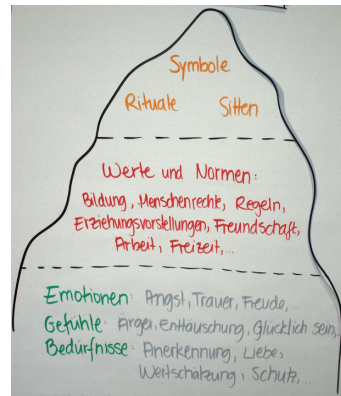 Symbole
Rituale Sitten
Werte und Normen:
Bildung, Menschenrechte, Regeln,
Erziehungsvorstellungen, Freundschaft,
Arbeit, Freizeit,...
Emotionen: Angst, Trauer, Freude,...
Gefühle: Ärger, Enttäuschung, Glücklich sein,...
Bedürfnisse: Anerkennung, Liebe,
Wertschätzung, Schutz,...